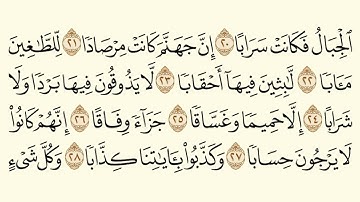 ٱلۡجِبَالُ فَكَانَتۡ سَرَابًا ٢٠ إِنَّ جَهَنَّمَ كَانَتۡ مِرۡصَادٗا ٢١ لِّلطَّٰغِينَ
مَـَٔابٗا ٢٢ لَّٰبِثِينَ فِيهَآ أَحۡقَابٗا ٢٣ لَّا يَذُوقُونَ فِيهَا بَرۡدٗا وَلَا
شَرَابًا ٢٤ إِلَّا حَمِيمٗا وَغَسَّاقٗا ٢٥ جَزَآءٗ وِفَاقًا ٢٦ إِنَّهُمۡ كَانُواْ
لَا يَرۡجُونَ حِسَابٗا ٢٧ وَكَذَّبُواْ بِـَٔايَٰتِنَا كِذَّابٗا ٢٨ وَكُلَّ شَيۡءٍ